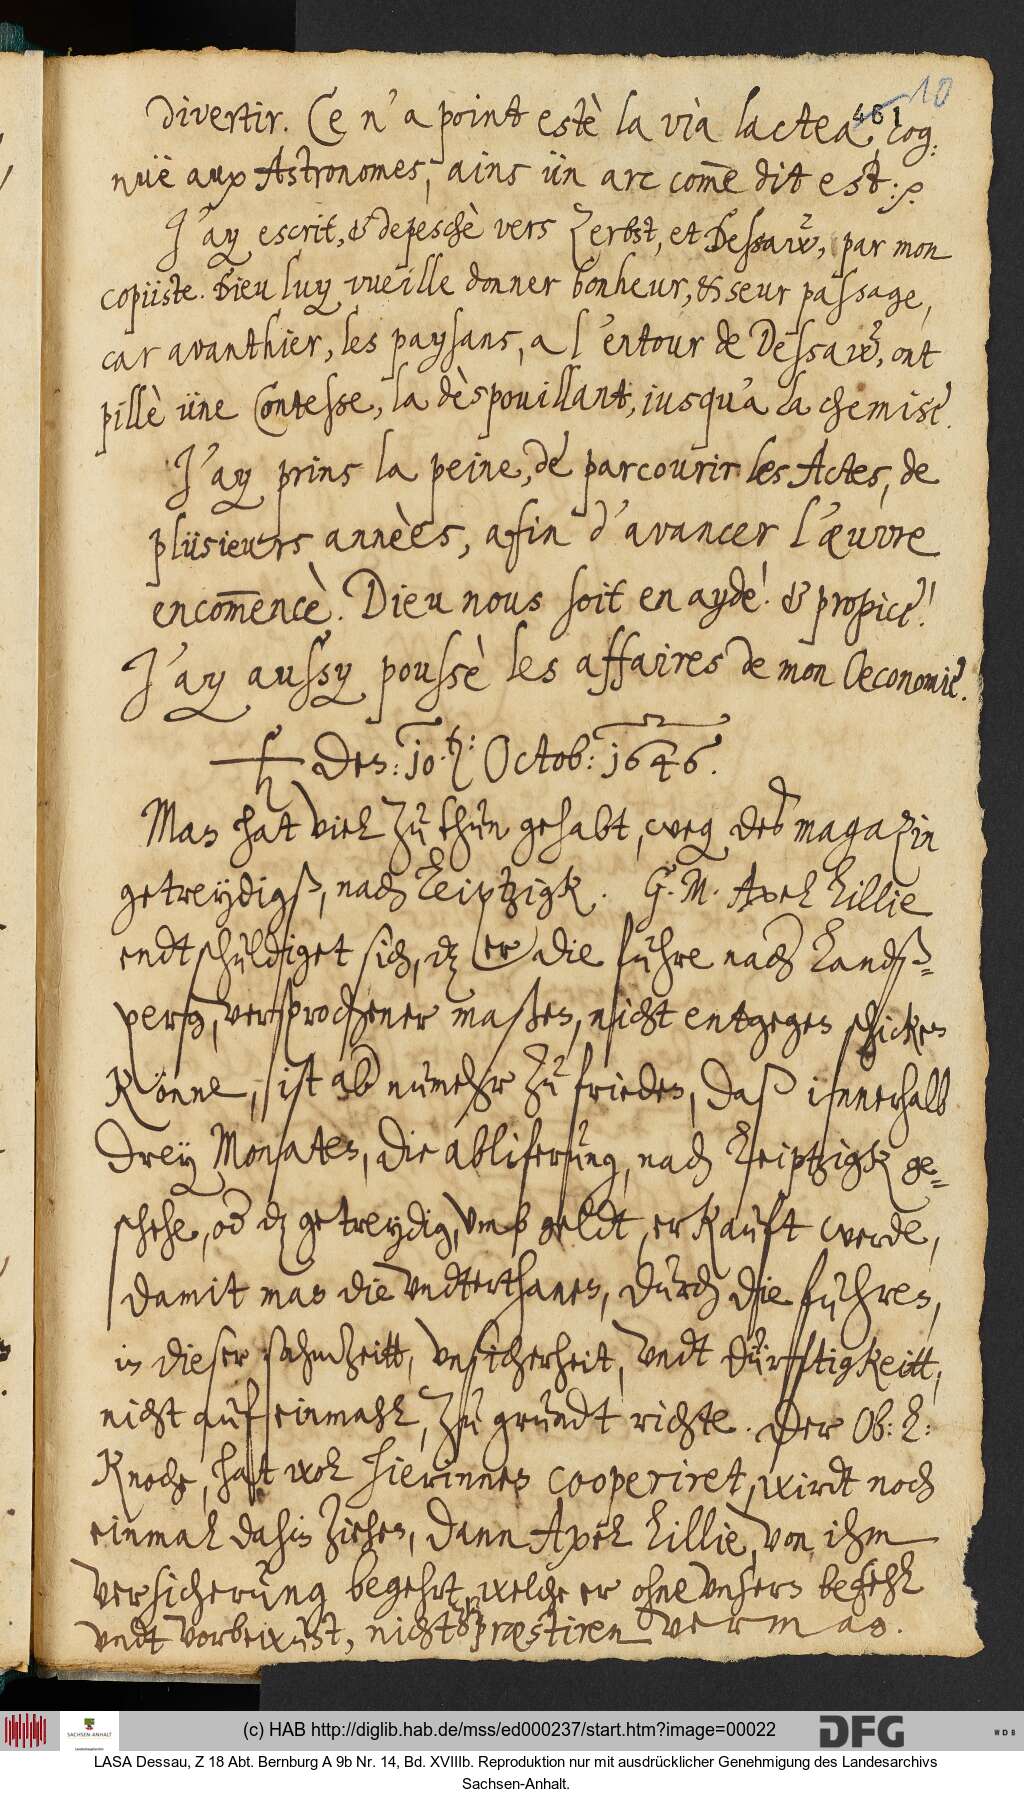 10
461
divertir. Ce n'a point estè la vià lactea, cog:
nuë aux Astronomes, ains ün arc com̅e dit est:
J'ay escrit, & depeschè vers Zerbst, et Dessaw, par mon
copiiste. Dieu luy vueille donner bonheur, & seur passage,
car avanthier, les paysans, a l'entour de Dessaw, ont
pillè üne Contesse, la dèspouillant, iusqu'a la chemise.
J'ay prins la peine, de parcourir les Actes, de
plüsieurs annèes, afin d'avancer l'œuvre
encom̅encè. Dieu nous soit en ayde! & propice!
J'ay aussy poussè les affaires de mon Oeconomie.
♄ Den: 10.t: Octob: 1646.
Man hat viel zu thun gehabt, weg des magazin
getreydigß, nach Leiptzigk. G. M. Axel Lillie
endtschuldiget sich, dz er die fuhre nach Landß-
perg, versprochener maßen, nicht entgegen schicken
könne, ist ab numehr zu frieden, daß innerhalb
drey Monaten, die abliferung, nach Leiptzigk ge-
schehe, od dz getreydig, vmb geldt erkauft werde,
damit man die vndterthanen, durch die fuhren,
in dieser sahmzeitt, vnsicherheit, vndt dürfftigkeitt,
nicht auf einmahl, zu grundt richte. Der Ob: L:
Knoche, hat wol hierinnen cooperiret, wirdt noch
einmal dahin ziehen, dann Axel Lillie, von ihm
versicherung begehrt, welche er ohne vnsern befehl
vndt vorbewust, nicht præstiren vermag.
(c) HAB http://diglib.hab.de/mss/ed000237/start.htm?image=00022
SACHSEN-ANHALT
DFG
WDB
LASA Dessau, Z 18 Abt. Bernburg A 9b Nr. 14, Bd. XVIIIb. Reproduktion nur mit ausdrücklicher Genehmigung des Landesarchivs
Sachsen-Anhalt.